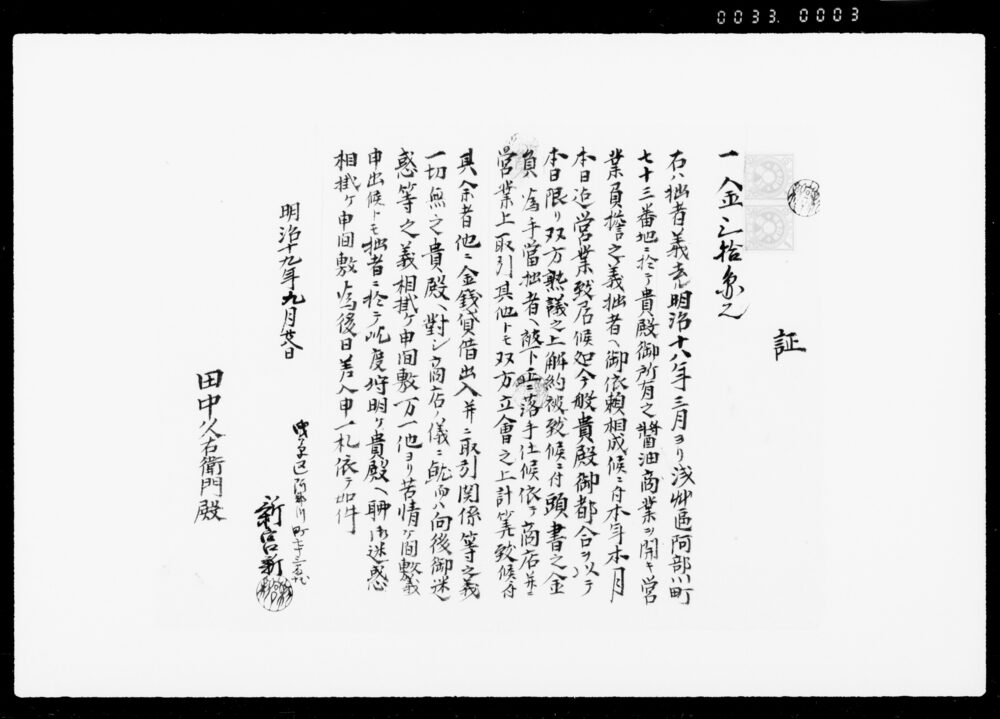 0033. 0003
証
一金三拾円之
右ハ拙者義去明治十八年三月ヨリ浅艸区阿部川町
七十三番地ニ於テ貴殿御所有之醤油商業ヲ開キ営
業負担之義拙者ヘ御依頼相成候ニ付本年本月
本日迄営業致居候処今般貴殿御都合ヲ以テ
本日限リ双方熟議之上解約被致候ニ付頭書之金
員為手当拙者ヘ被下正ニ落手仕候依テ商店並ニ
営業上取引其他トモ双方立会之上計算致候付
其余者他ニ金銭貸借出入并ニ取引関係等之義
一切無之貴殿ヘ対シ商店ノ儀ニ就而ハ向後御迷
惑等之義相掛ケ申間敷万一他ヨリ苦情ケ間敷義
申出候トモ拙者ニ於テ此度埒明ケ貴殿ヘ聊御迷惑
相掛ケ申間敷為後日差入申一札依テ如件
明治十九年九月廿日
浅草区阿部川町七十三番地
新宮新
田中久右衛門殿